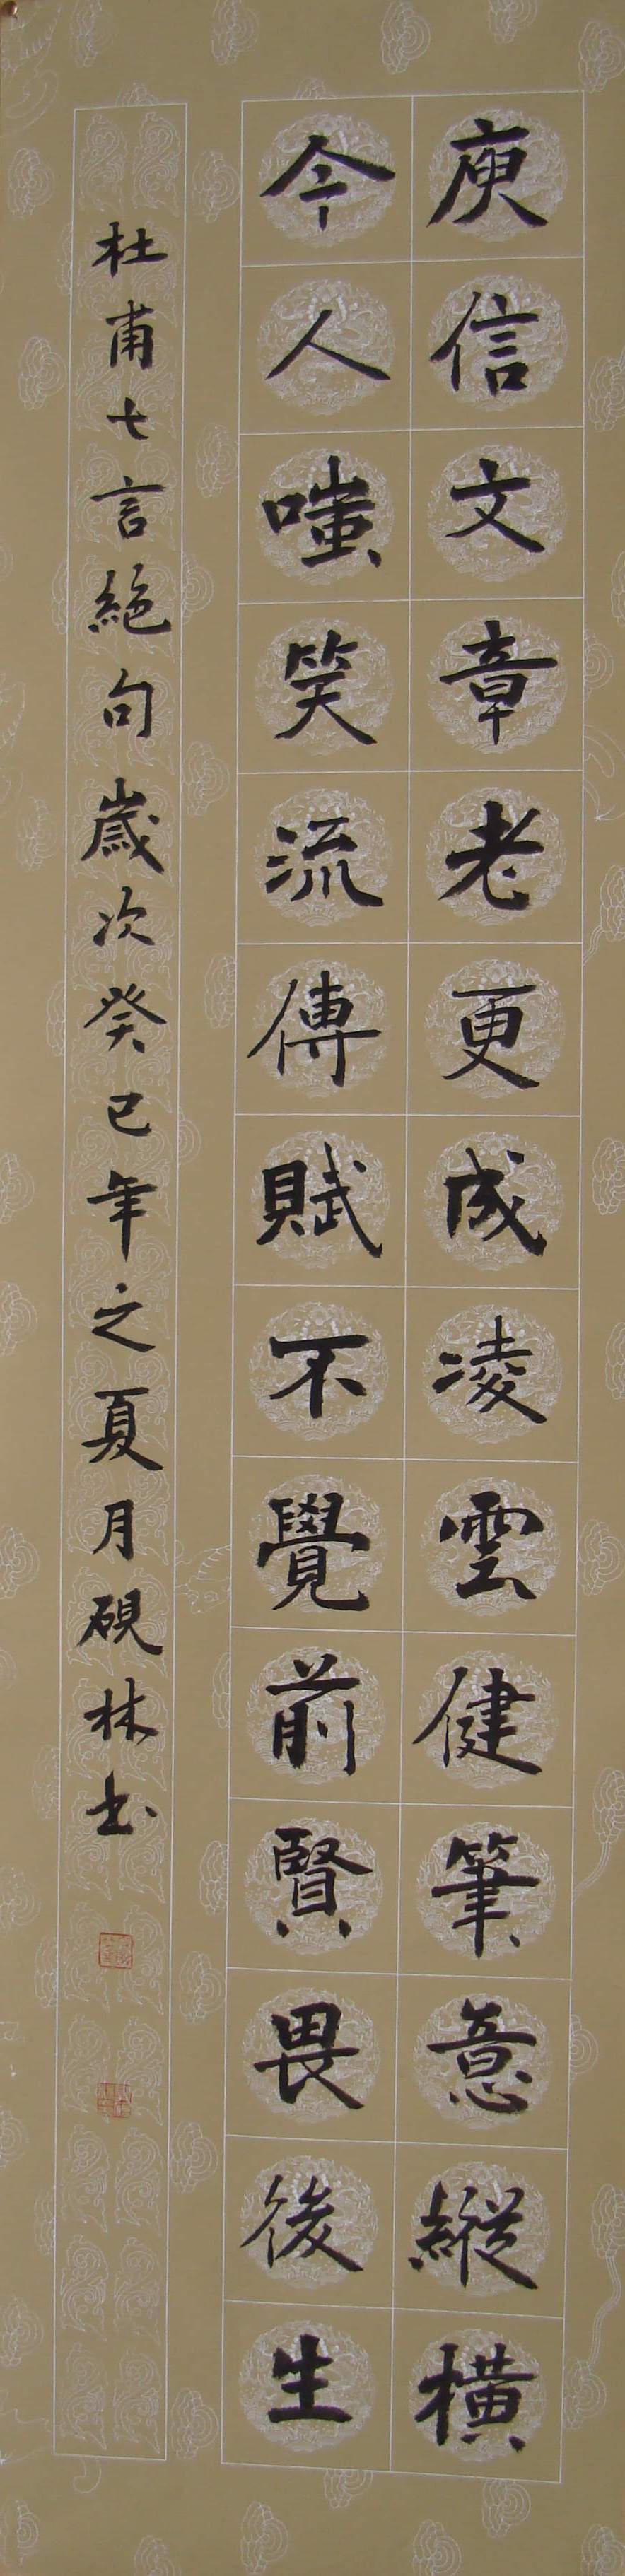 庾信文章老更成凌雲健筆意縱橫
今人嗤笑流傳賦不覺前賢畏後生
杜甫七言絕句歲次癸巳年之夏月硯林书